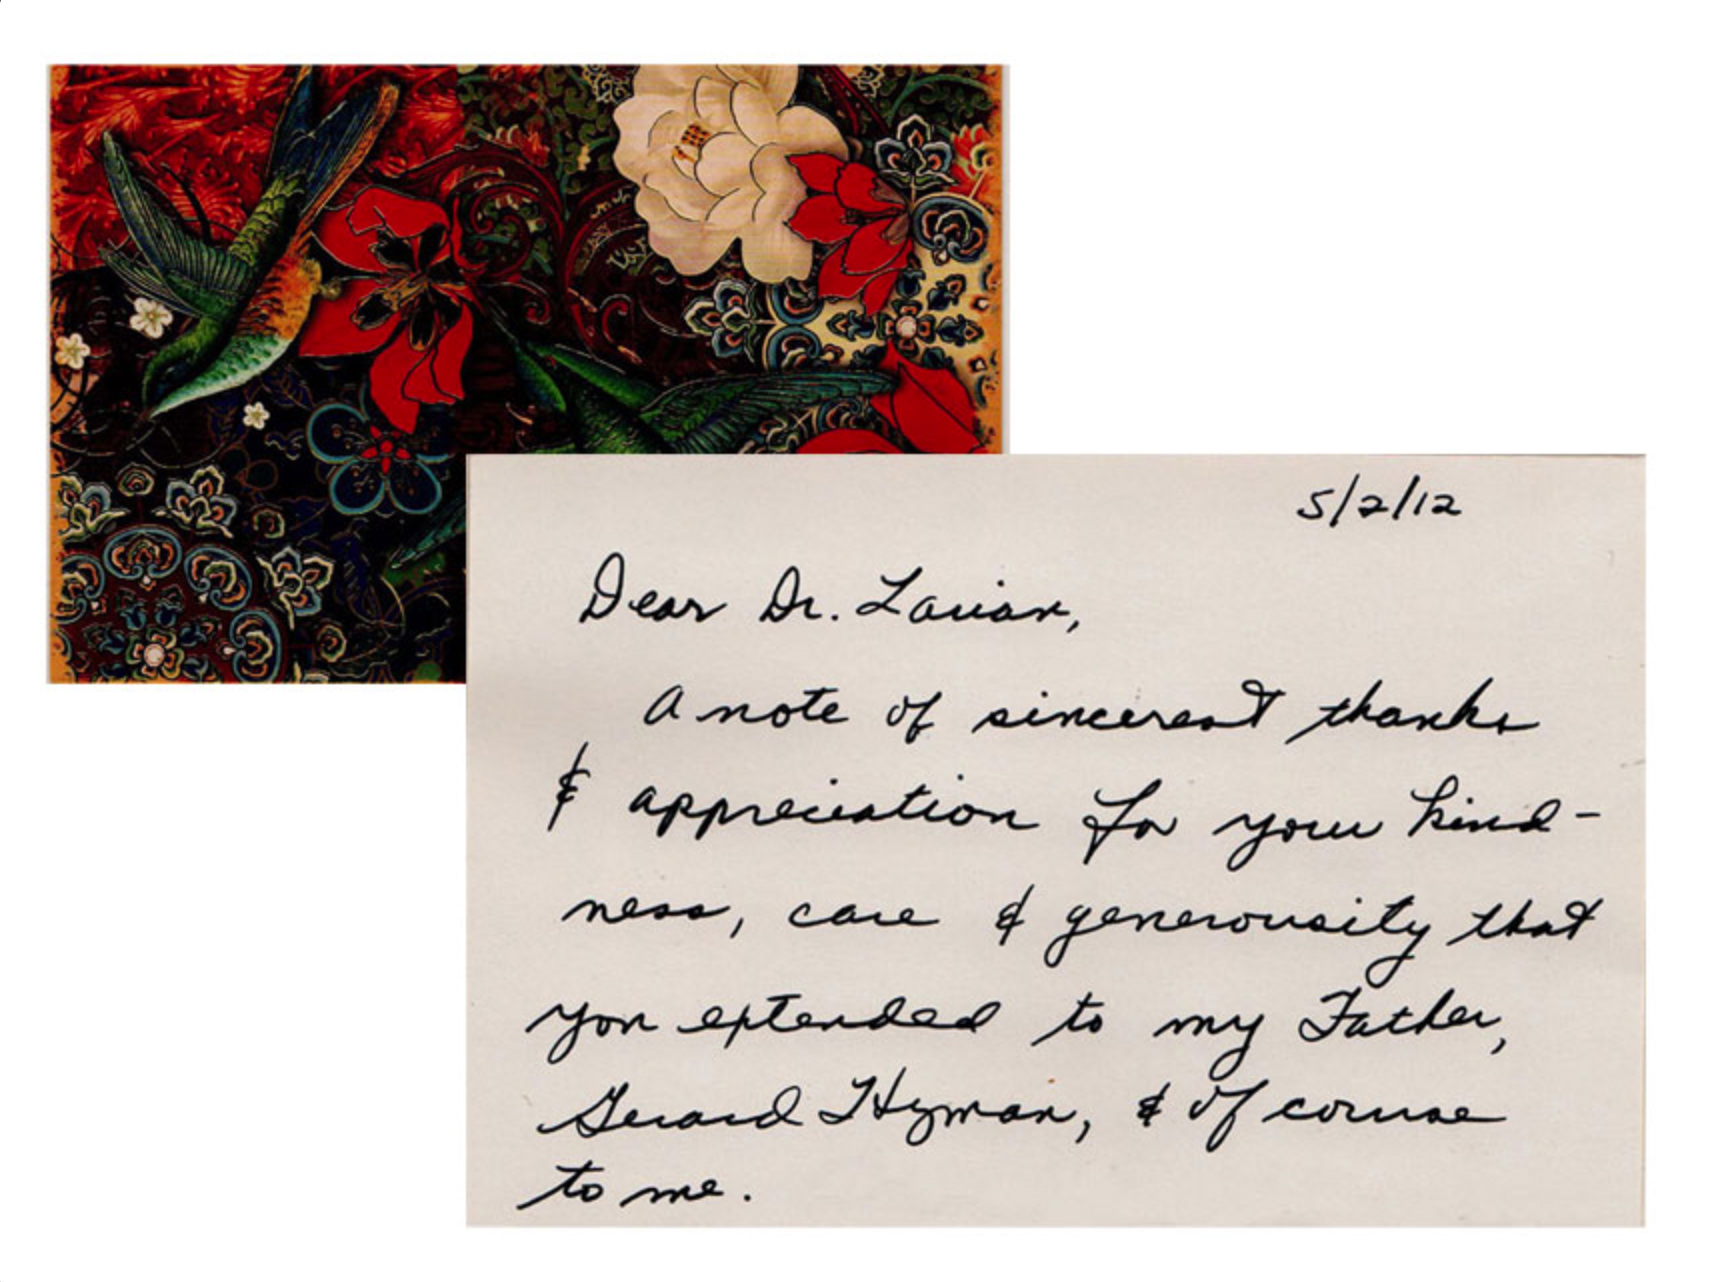 5/2/12
Dear Dr. Lavian,
A note of sincerest thanks
& appreciation for your kind-
ness, care & generousity that
you extended to my Father,
Gerard Hyman, & of course
to me.